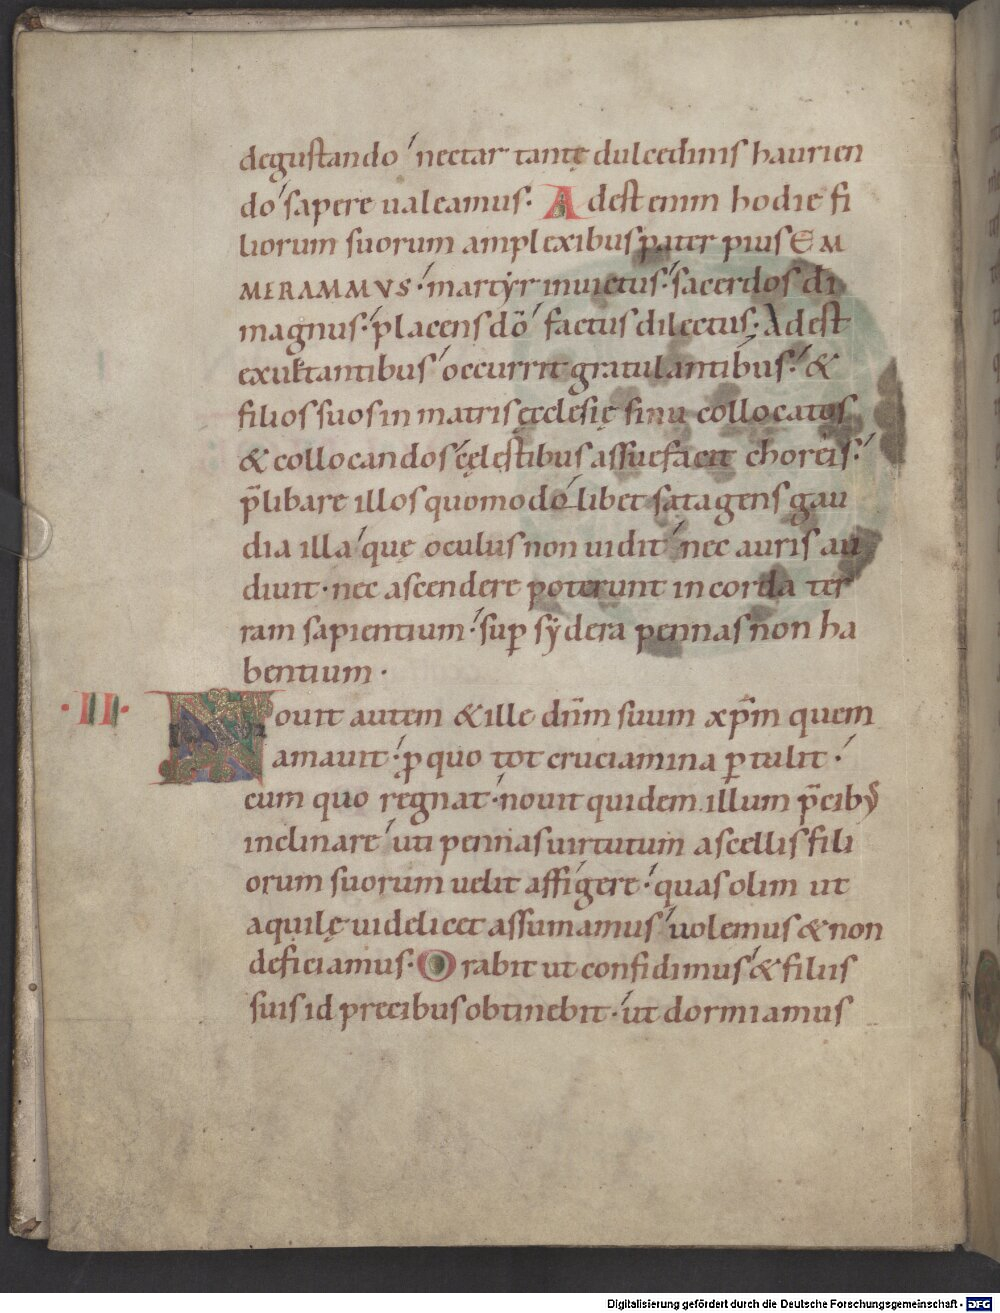 degustando nectar tantę dulcedinis haurien
do sapere ualeamus. Adest enim hodie fi
liorum suorum amplexibus pater pius EM
MERAMMUS. martyr inuictus. sacerdos dī
magnus. placens dō factus dilectus. Adest
exultantibus occurrit gratulantibus. &
filios suos in matris ęcclesię sinu collocatos
& collocandos cęlestibus assuefacit choreis.
p̄libare illos quomodolibet satagens gau
dia illa quę oculus non uidit nec auris au
diuit. nec ascendere poterunt in corda ter
ram sapientium. suꝑ sẏdera pennas non ha
bentium.
·II· Nouit autem & ille dn̄m suum xp̄m quem
amauit. ꝓ quo tot cruciamina ꝑtulit.
cum quo regnat. nouit quidem illum p̄cibꝰ
inclinare uti pennas uirtutum ascellis fili
orum suorum uelit affigere. quas olim ut
aquilę uidelicet assumamus uolemus & non
deficiamus. Orabit ut confidimus & filiis
suis id precibus obtinebit. ut dormiamus
Digitalisierung gefördert durch die Deutsche Forschungsgemeinschaft - DFG